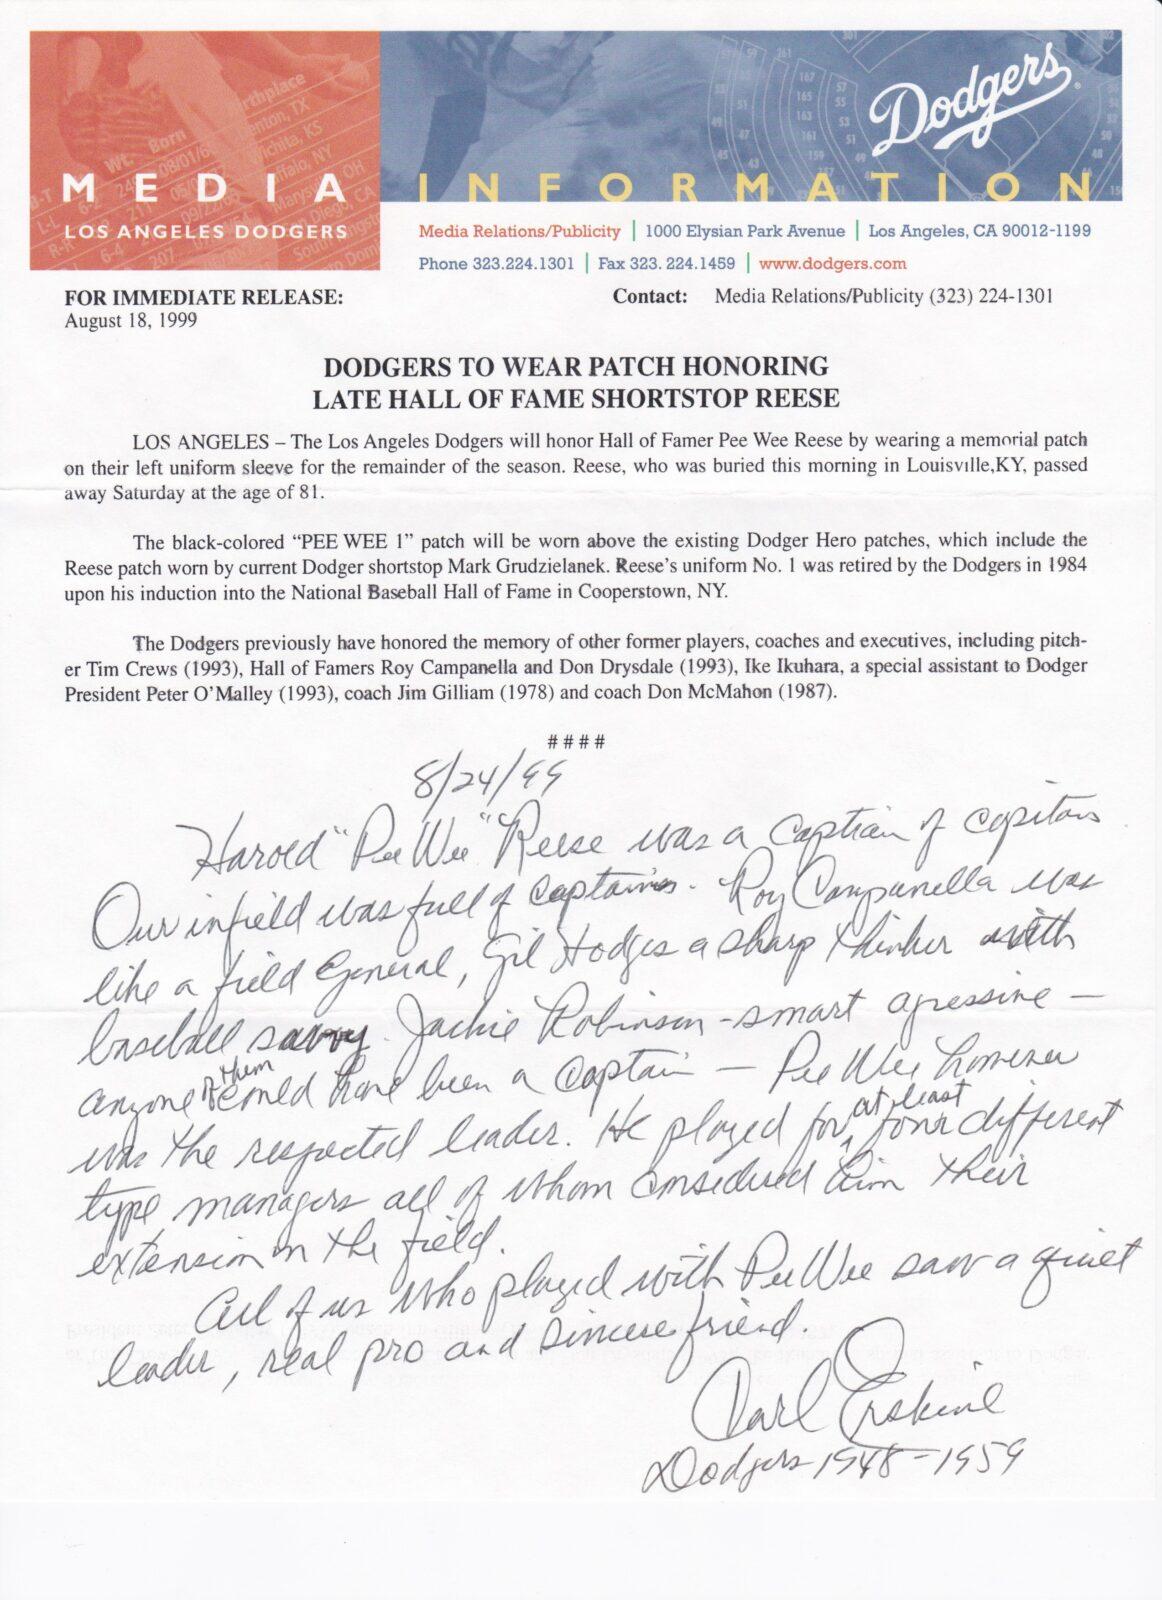 Dodgers
MEDIA INFORMATION
LOS ANGELES DODGERS
Media Relations/Publicity | 1000 Elysian Park Avenue | Los Angeles, CA 90012-1199
Phone 323.224.1301 | Fax 323. 224.1459 | www.dodgers.com
FOR IMMEDIATE RELEASE:
August 18, 1999
Contact: Media Relations/Publicity (323) 224-1301
DODGERS TO WEAR PATCH HONORING
LATE HALL OF FAME SHORTSTOP REESE
LOS ANGELES – The Los Angeles Dodgers will honor Hall of Famer Pee Wee Reese by wearing a memorial patch
on their left uniform sleeve for the remainder of the season. Reese, who was buried this morning in Louisville,KY, passed
away Saturday at the age of 81.
The black-colored “PEE WEE 1” patch will be worn above the existing Dodger Hero patches, which include the
Reese patch worn by current Dodger shortstop Mark Grudzielanek. Reese’s uniform No. 1 was retired by the Dodgers in 1984
upon his induction into the National Baseball Hall of Fame in Cooperstown, NY.
The Dodgers previously have honored the memory of other former players, coaches and executives, including pitch-
er Tim Crews (1993), Hall of Famers Roy Campanella and Don Drysdale (1993), Ike Ikuhara, a special assistant to Dodger
President Peter O’Malley (1993), coach Jim Gilliam (1978) and coach Don McMahon (1987).
####
8/24/99
Harold "Pee Wee" Reese was a Captian of capitans
Our infield was full of captains. Roy Campanella was
like a field General, Gil Hodges a sharp thinker with
baseball savvy. Jackie Robinson - smart agressive -
anyone of them could have been a Captain - Pee Wee however
was the respected leader. He played for at least four different
type managers all of whom considered him their
extension on the field.
All of us who played with Pee Wee saw a quiet
leader, real pro and sincere friend.
Carl Erskine
Dodgers 1948-1959